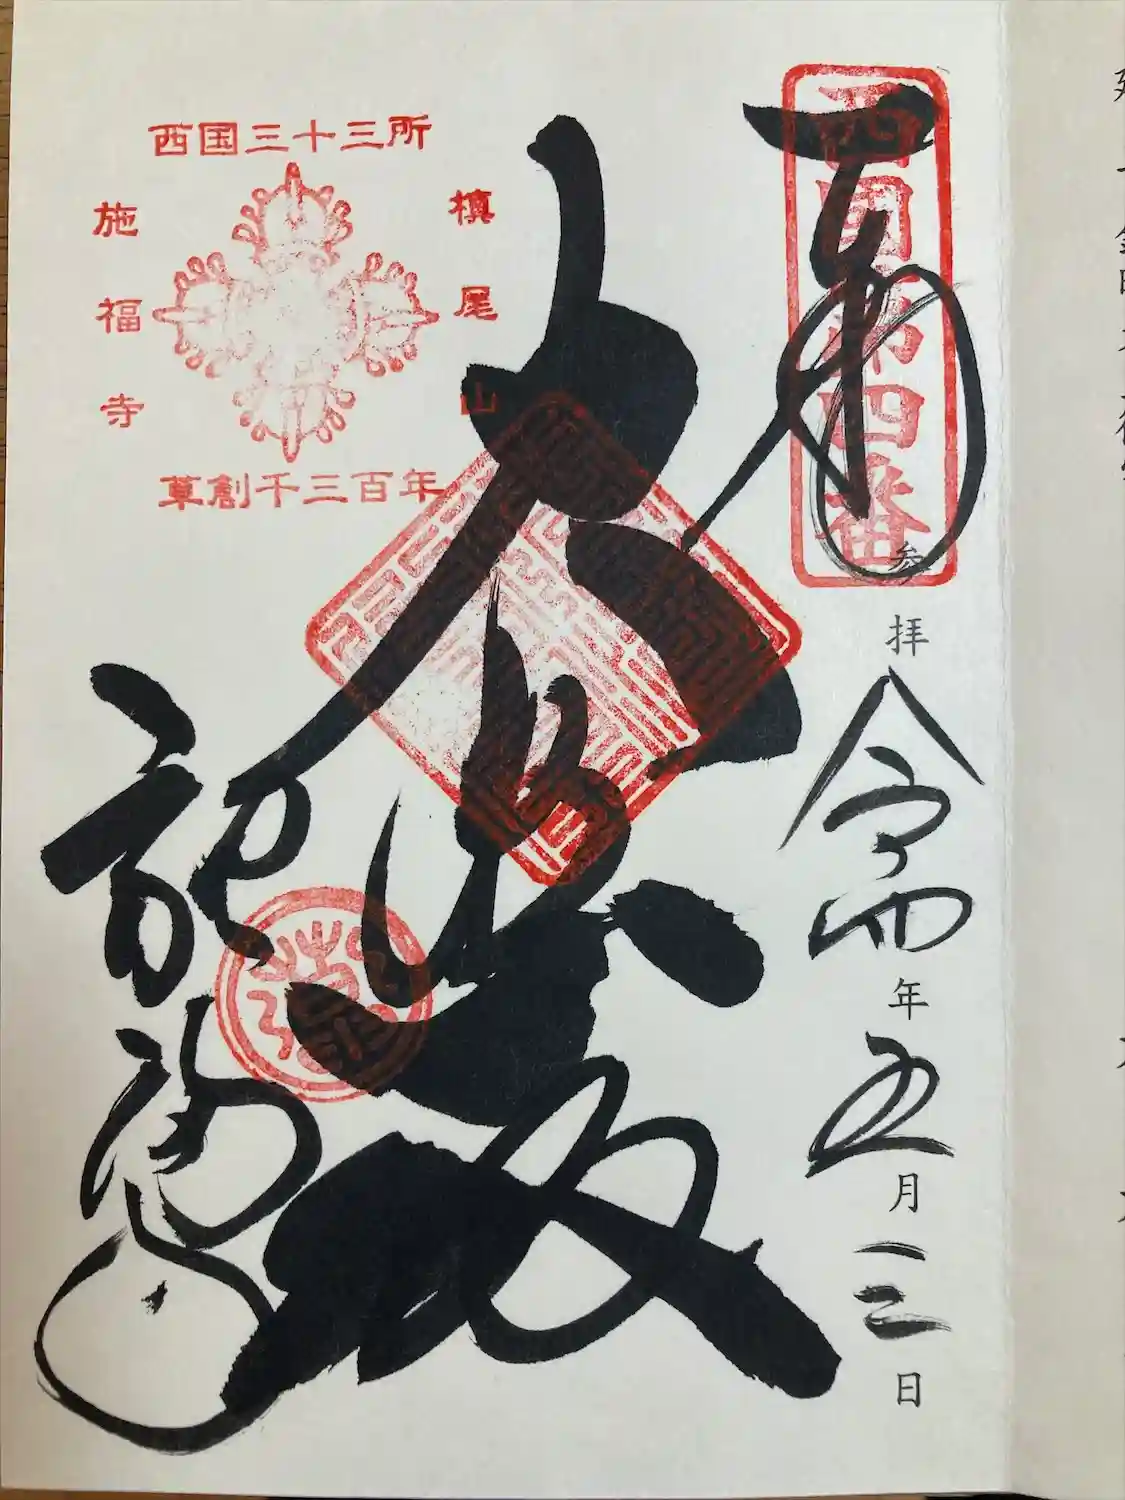 西国第四番
奉
参拝
令和四年五月三日
大悲殿
施福寺
西国三十三所
槙尾山
施福寺
草創千三百年